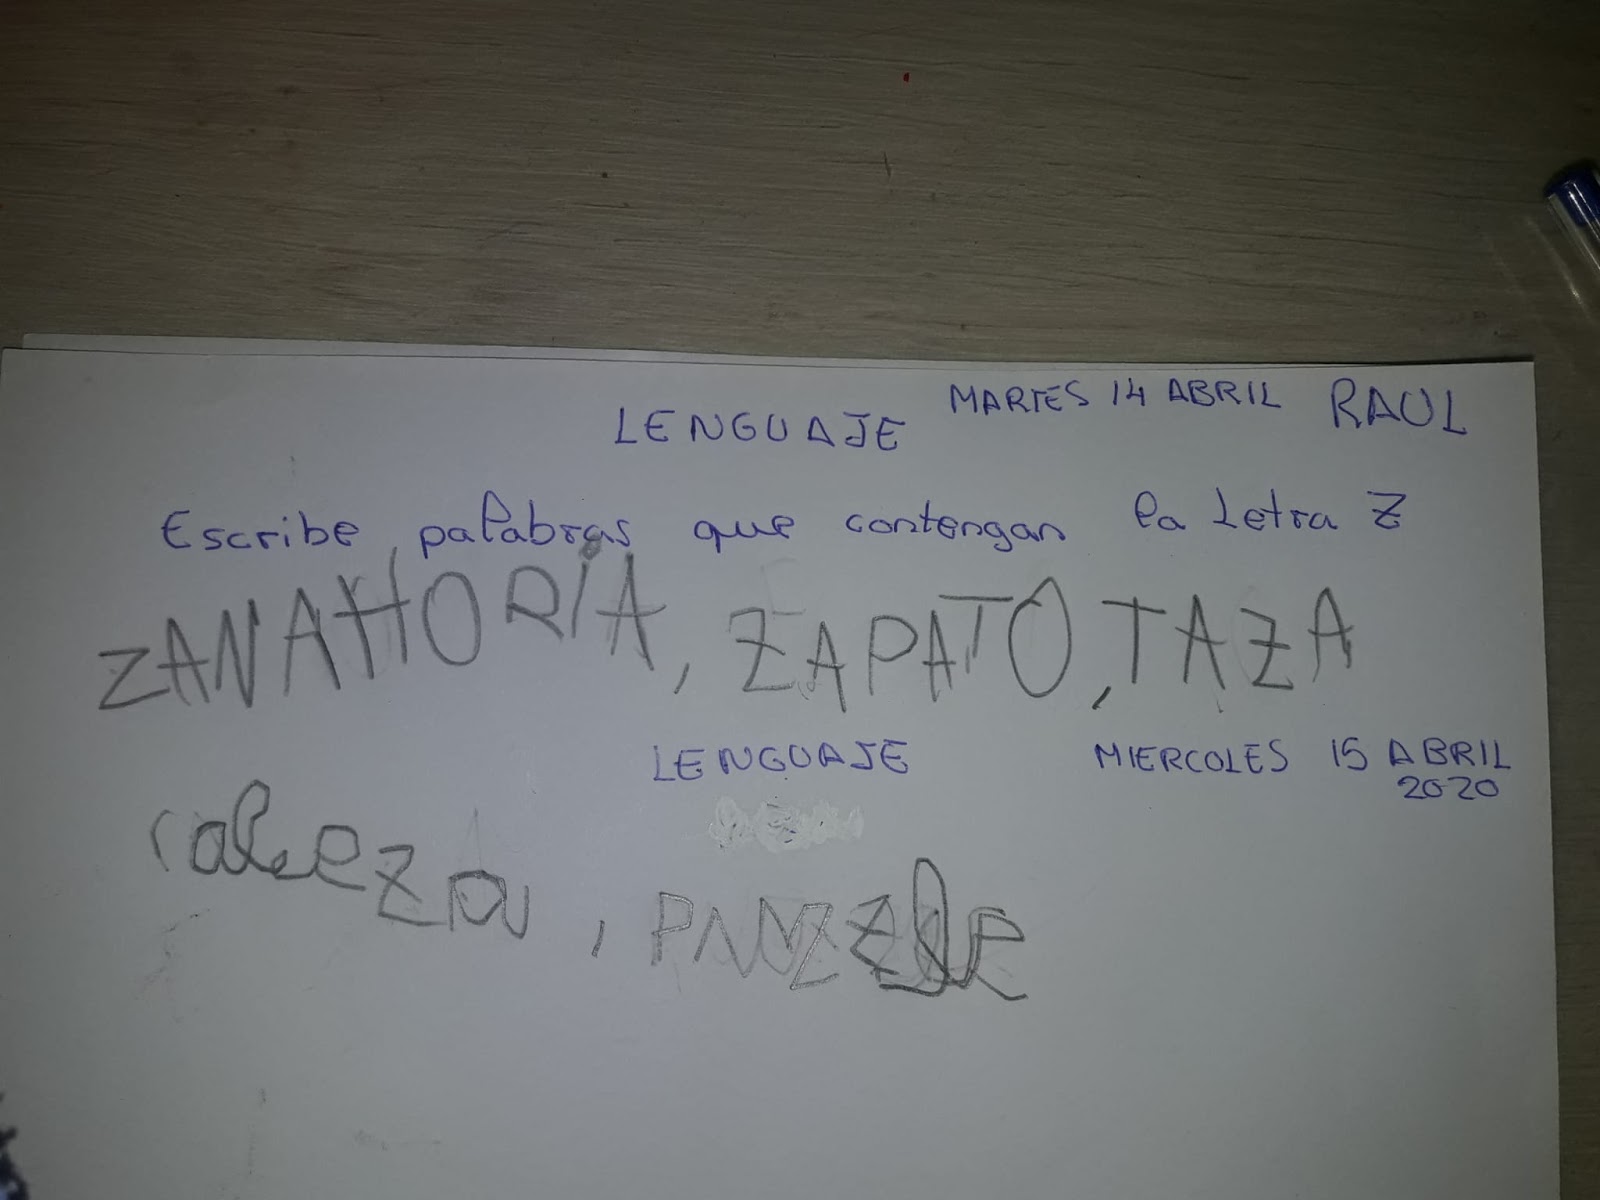 MARTES 14 ABRIL RAUL
LENGUAJE
Escribe palabras que contengan la Letra Z
ZANAHORIA, ZAPATO, TAZA
LENGUAJE MIERCOLES 15 ABRIL
2020
cabeza,